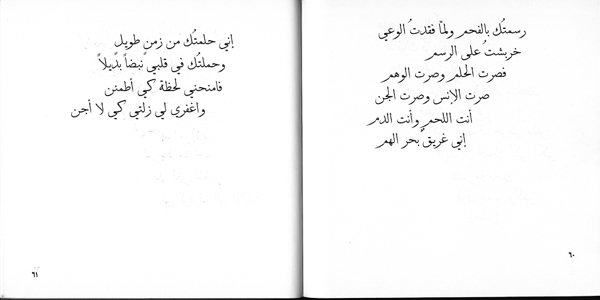 رسمتُك بالفحم ولمّا فقدتُ الوعي
خربشتُ على الرسم
فصرت الحلم وصرت الوهم
صرت الإنس وصرت الجن
أنت اللحم وأنت الدم
إني غريقٌ بحر الهم
٦٠
إني حلمتُك من زمنٍ طويل
وحملتُك في قلبي نبضاً بديلاً
فامنحني لحظة كي أطمئن
واغفري لي زلتي كي لا أجن
٦١